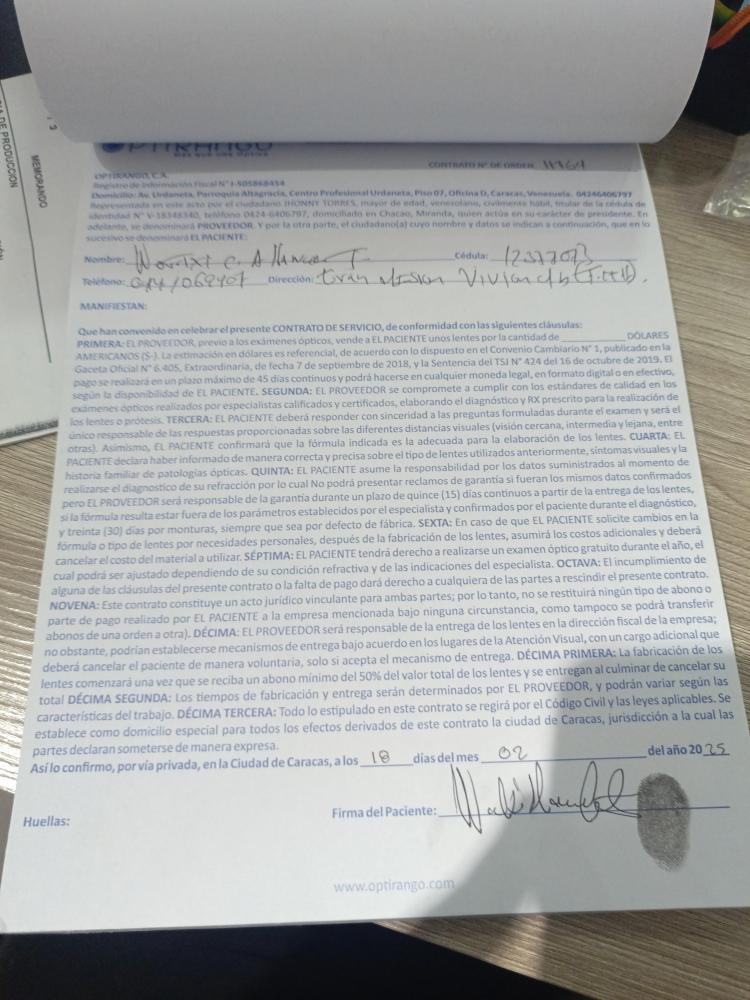 OPTIRANGO
Más que una óptica
CONTRATO N° DE ORDEN 11364
OPTIRANGO, C.A.
Registro de Información Fiscal N° J-505868454
Domicilio: Av. Urdaneta, Parroquia Altagracia, Centro Profesional Urdaneta, Piso 07, Oficina D, Caracas, Venezuela. 04246406797
Representada en este acto por el ciudadano JHONNY TORRES, mayor de edad, venezolano, civilmente hábil, titular de la cédula de
identidad N° V-18348340, teléfono 0424-6406797, domiciliado en Chacao, Miranda, quien actúa en su carácter de presidente. En
adelante, se denominará PROVEEDOR. Y por la otra parte, el ciudadano(a) cuyo nombre y datos se indican a continuación, que en lo
sucesivo se denominará EL PACIENTE:
Nombre: Cédula: 12377073
Teléfono: Dirección: Gran Mision Vivienda
MANIFIESTAN:
Que han convenido en celebrar el presente CONTRATO DE SERVICIO, de conformidad con las siguientes cláusulas:
PRIMERA: EL PROVEEDOR, previo a los exámenes ópticos, vende a EL PACIENTE unos lentes por la cantidad de DÓLARES
AMERICANOS ($-). La estimación en dólares es referencial, de acuerdo con lo dispuesto en el Convenio Cambiario N° 1, publicado en la
Gaceta Oficial N° 6.405, Extraordinaria, de fecha 7 de septiembre de 2018, y la Sentencia del TSJ N° 424 del 16 de octubre de 2019. El
pago se realizará en un plazo máximo de 45 días continuos y podrá hacerse en cualquier moneda legal, en formato digital o en efectivo,
según la disponibilidad de EL PACIENTE. SEGUNDA: EL PROVEEDOR se compromete a cumplir con los estándares de calidad en los
exámenes ópticos realizados por especialistas calificados y certificados, elaborando el diagnóstico y RX prescrito para la realización de
los lentes o prótesis. TERCERA: EL PACIENTE deberá responder con sinceridad a las preguntas formuladas durante el examen y será el
único responsable de las respuestas proporcionadas sobre las diferentes distancias visuales (visión cercana, intermedia y lejana, entre
otras). Asimismo, EL PACIENTE confirmará que la fórmula indicada es la adecuada para la elaboración de los lentes. CUARTA: EL
PACIENTE declara haber informado de manera correcta y precisa sobre el tipo de lentes utilizados anteriormente, síntomas visuales y la
historia familiar de patologías ópticas. QUINTA: EL PACIENTE asume la responsabilidad por los datos suministrados al momento de
realizarse el diagnostico de su refracción por lo cual No podrá presentar reclamos de garantía si fueran los mismos datos confirmados
pero EL PROVEEDOR será responsable de la garantía durante un plazo de quince (15) días continuos a partir de la entrega de los lentes,
si la fórmula resulta estar fuera de los parámetros establecidos por el especialista y confirmados por el paciente durante el diagnóstico,
y treinta (30) días por monturas, siempre que sea por defecto de fábrica. SEXTA: En caso de que EL PACIENTE solicite cambios en la
fórmula o tipo de lentes por necesidades personales, después de la fabricación de los lentes, asumirá los costos adicionales y deberá
cancelar el costo del material a utilizar. SÉPTIMA: EL PACIENTE tendrá derecho a realizarse un examen óptico gratuito durante el año, el
cual podrá ser ajustado dependiendo de su condición refractiva y de las indicaciones del especialista. OCTAVA: El incumplimiento de
alguna de las cláusulas del presente contrato o la falta de pago dará derecho a cualquiera de las partes a rescindir el presente contrato.
NOVENA: Este contrato constituye un acto jurídico vinculante para ambas partes; por lo tanto, no se restituirá ningún tipo de abono o
parte de pago realizado por EL PACIENTE a la empresa mencionada bajo ninguna circunstancia, como tampoco se podrá transferir
abonos de una orden a otra). DÉCIMA: EL PROVEEDOR será responsable de la entrega de los lentes en la dirección fiscal de la empresa;
no obstante, podrían establecerse mecanismos de entrega bajo acuerdo en los lugares de la Atención Visual, con un cargo adicional que
deberá cancelar el paciente de manera voluntaria, solo si acepta el mecanismo de entrega. DÉCIMA PRIMERA: La fabricación de los
lentes comenzará una vez que se reciba un abono mínimo del 50% del valor total de los lentes y se entregan al culminar de cancelar su
total DÉCIMA SEGUNDA: Los tiempos de fabricación y entrega serán determinados por EL PROVEEDOR, y podrán variar según las
características del trabajo. DÉCIMA TERCERA: Todo lo estipulado en este contrato se regirá por el Código Civil y las leyes aplicables. Se
establece como domicilio especial para todos los efectos derivados de este contrato la ciudad de Caracas, jurisdicción a la cual las
partes declaran someterse de manera expresa.
Así lo confirmo, por vía privada, en la Ciudad de Caracas, a los 18 días del mes 02 del año 2025
Firma del Paciente:
Huellas:
www.optirango.com
MEMORANDO
DE PRODUCCION